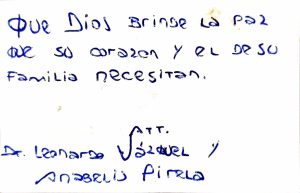 Que Dios Brinde la paz
que su corazon y el de su
Familia necesitan.
Att.
Dr. Leonardo Vázquez y
Anabelis Pirela